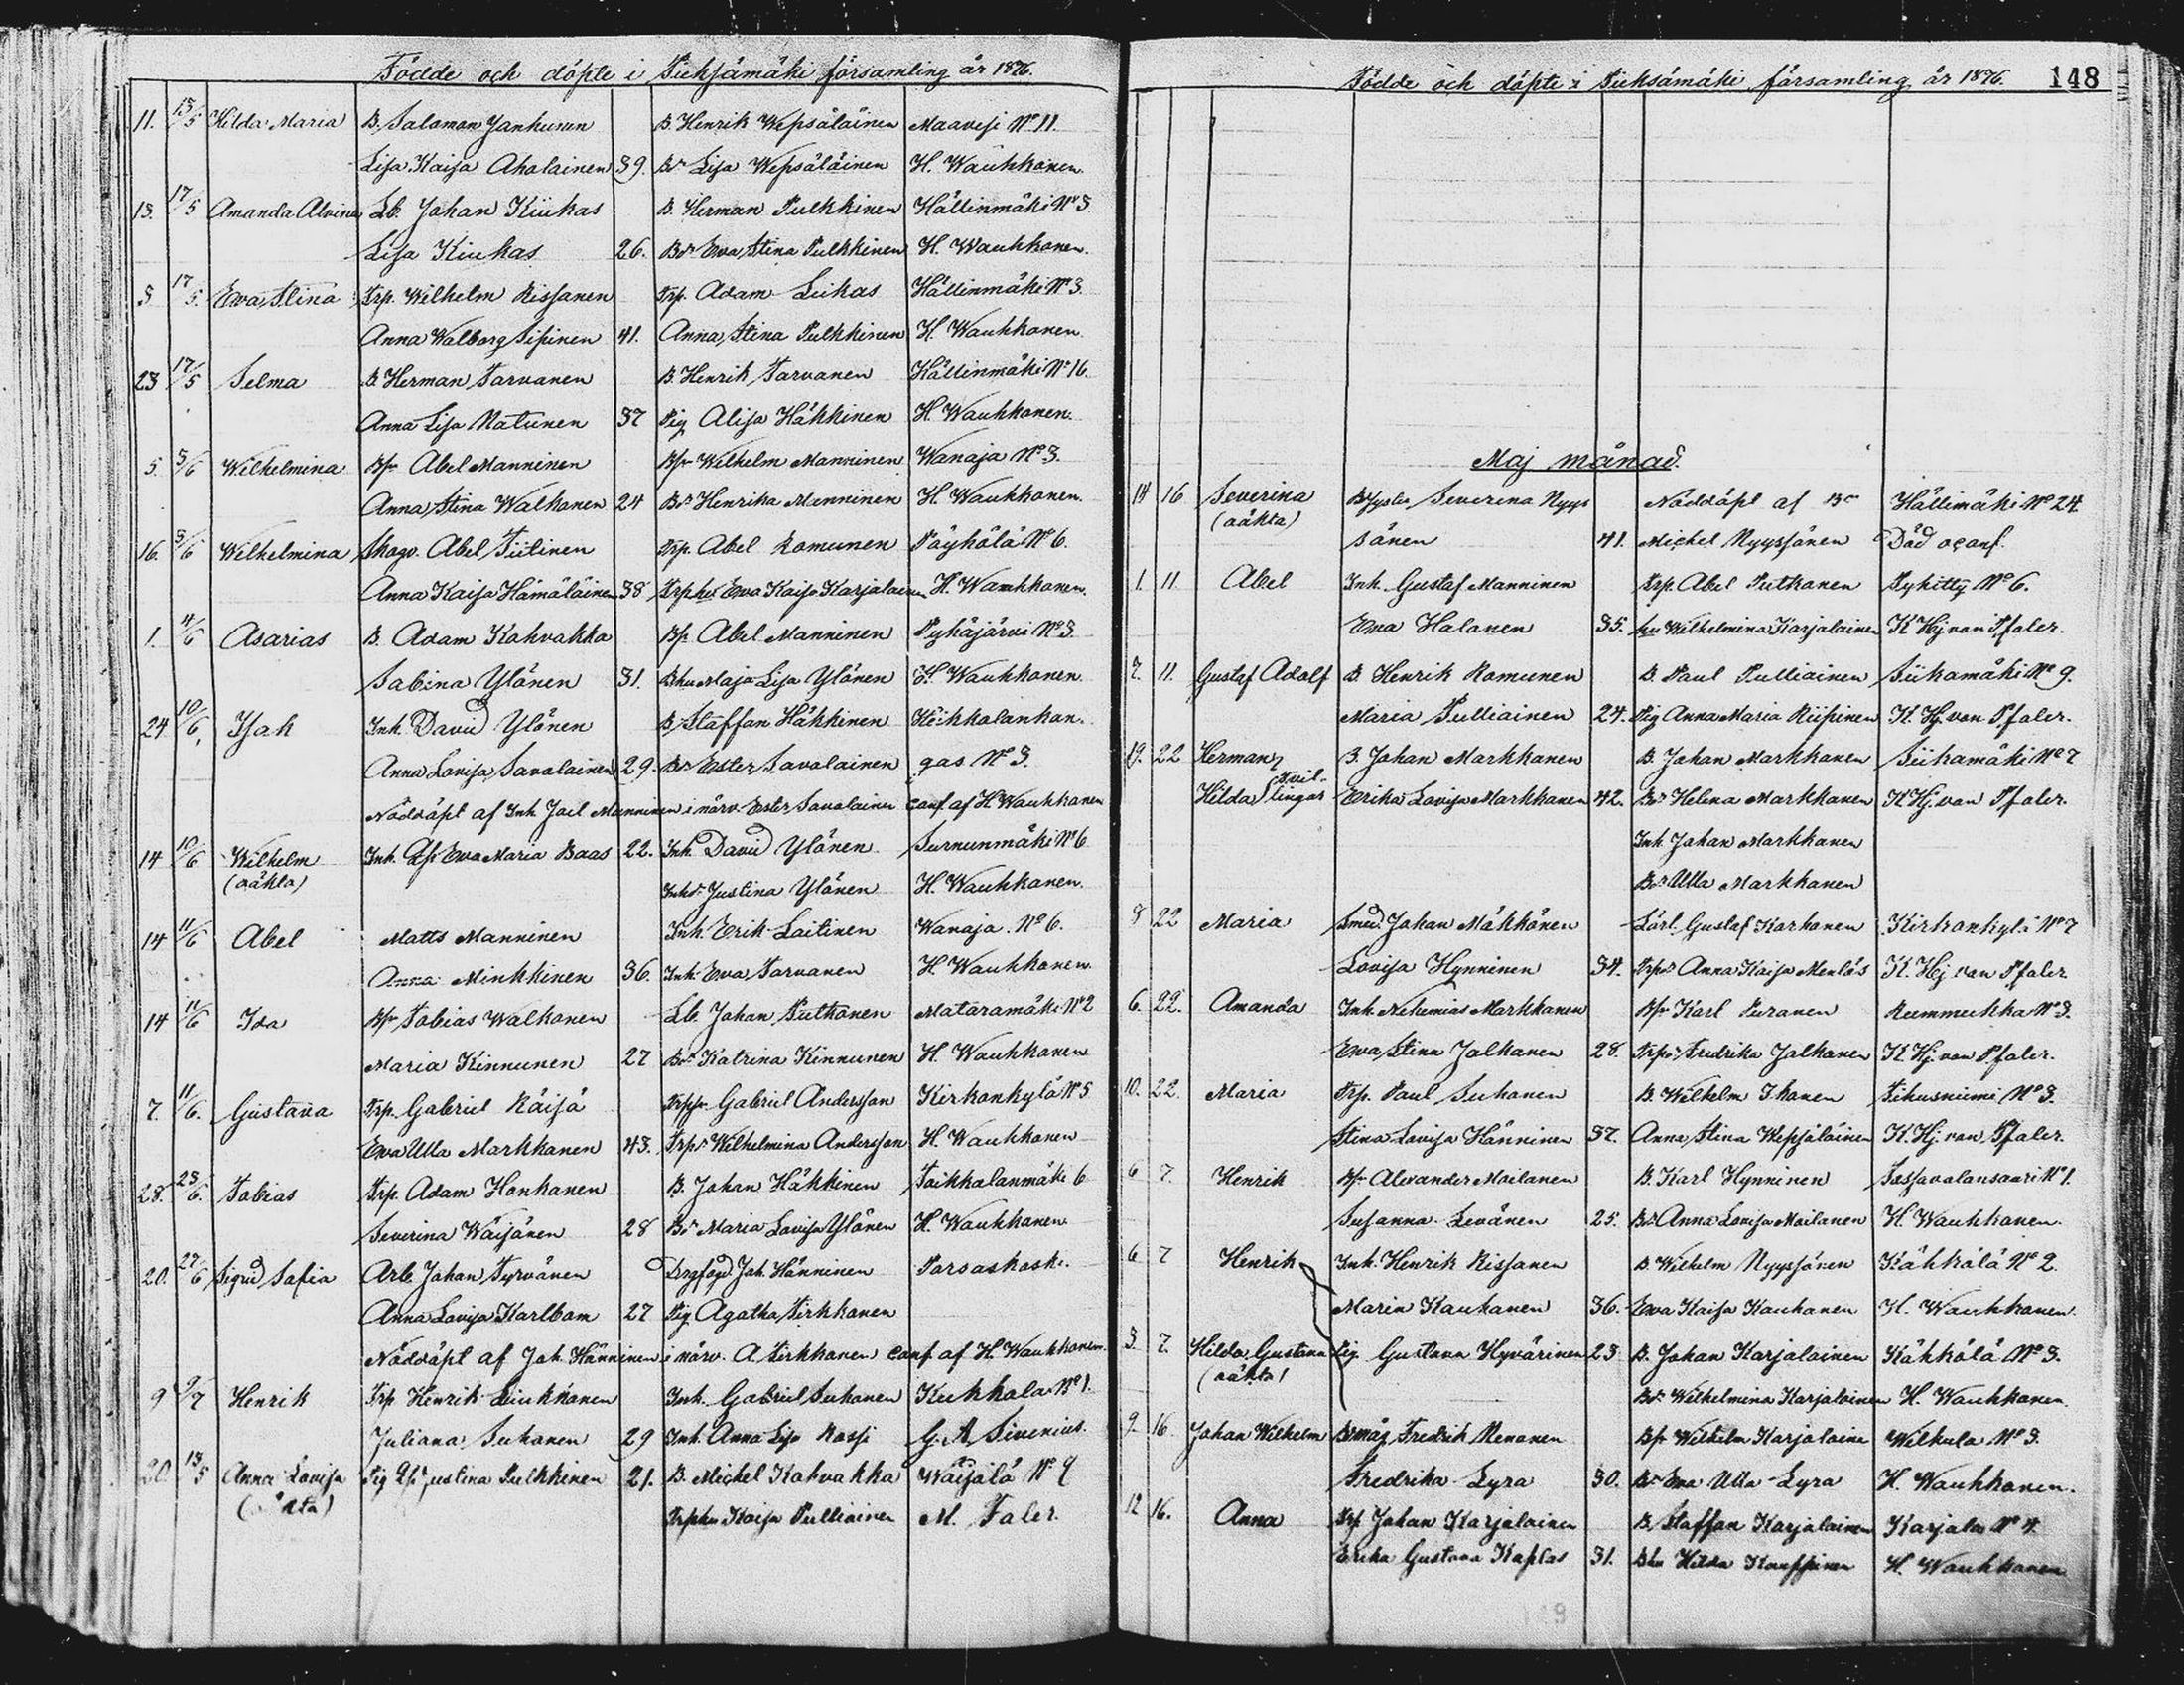 Födde och döpte i Pieksämäki församling år 1876.
11. 13/5 Hilda Maria B. Salomon Janhunen B. Henrik Wepsäläinen Maavesi No 11.
Lisa Kaisa Aholainen 39. Bdr Lisa Wepsäläinen H. Wauhkonen.
13. 17/5 Amanda Alvina Lb. Johan Kiukas B. Herman Pulkkinen Hällinmäki No 3
Lisa Kiukas 26. Bdr Ewa Stina Pulkkinen H. Wauhkonen.
3 17/5. Ewa Stina Trp. Wilhelm Rissanen Trp. Adam Leikas Hällinmäki No 3.
Anna Walborg Sipinen 41. Anna Stina Pulkkinen H. Wauhkonen
23 17/5 Selma B. Herman Tarvanen B. Henrik Tarvanen Hällinmäki No 16.
Anna Lisa Natunen 37 Pig Alisa Häkkinen H. Wauhkonen.
5. 3/6 Wilhelmina Bpr Abel Manninen Bpr Wilhelm Manninen Wanaja No 3.
Anna Stina Walkonen 24 Bdr Henrika Manninen H. Wauhkonen.
16. 3/6 Wilhelmina Skogv. Abel Tiitinen Trp. Abel Romunen Pöyhölä No 6.
Anna Kaisa Hämäläinen 38 Trphu Ewa Kaisa Karjalainen H. Wauhkonen.
1. 4/6 Asarias B. Adam Kahvakka Bp. Abel Manninen Pyhäjärvi No 3
Sabina Ylönen 31. Bhu Maja Lisa Ylönen H. Wauhkonen
24 10/6. Isak Inh. David Ylönen B. Staffan Häkkinen Heikkolankan.
Anna Lovisa Savolainen 29. Bdr Ester Savolainen gas No 3.
Nöddöpt af Inh Joel Manninen i närv. Ester Savolainen conf af H Wauhkonen
14 10/6 Wilhelm Inh. Df Ewa Maria Baas 22. Inh. David Ylönen Surnunmäki No 6
(oäkta) Inhdr Justina Ylönen H. Wauhkonen.
14 11/6 Abel Matts Manninen Inh. Erik Laitinen Wanaja No 6.
Anna Minkkinen 36. Inh. Ewa Tarvanen H. Wauhkonen
14 11/6 Ida Bpr Tobias Walkonen Lb. Johan Putkonen Mataramäki No 2
Maria Kinnunen 27 Bdr Katrina Kinnunen H. Wauhkonen
7. 11/6. Gustava Trp. Gabriel Räisä Trppr Gabriel Andersson Kirkonkylä No 5
Ewa Ulla Markkanen 43. Trpdr Wilhelmina Andersson H. Wauhkonen
28. 23/6. Tobias Trp. Adam Honkanen B. Johan Häkkinen Toikkalanmäki 6
Severina Wäisänen 28 Bdr Maria Lovisa Ylönen H. Wauhkonen
20. 27/6 Sigrid Sofia Arb Johan Tyrvänen Johan Hänninen Porsaskoski.
Anna Lovisa Karlbom 27 Pig. Agatha Tirkkonen
Nöddöpt af Joh. Hänninen i närv. A. Tirkkonen conf. af H. Wauhkonen.
9 9/7 Henrik Trp Henrik Liukkonen Inh. Gabriel Suhonen Kukkola No 1.
Juliana Suhonen 29 Inh. Anna Lisa Rossi G. A. Sivenius.
20 13/5 Anna Lovisa Pig Df Justina Pulkkinen 21. B. Michel Kahvakka Waisälä No 9
(oäkta) Trphu Kaisa Pulliainen M. Faler.
Födde och döpte i Pieksämäki församling år 1876. 148
Maj månad.
14 16 Severina Severina Nyys Nöddöpt af Bdr Hällimäki No 24.
(oäkta) sönen 41. Michel Nyyssönen Död oconf.
1. 11. Abel Inh. Gustaf Manninen Trp. Abel Putkonen Pyhitty No 6.
Ewa Halonen 35. hu Wilhelmina Karjalainen K Hj. von Pfaler.
7. 11. Gustaf Adolf B. Henrik Romunen B. Paul Pulliainen Siikamäki No 9.
Maria Pulliainen 24. Pig Anna Maria Riipinen K. Hj. von Pfaler.
19. 22 Herman, B. Johan Markkanen B. Johan Markkanen Siikamäki No 7
Hilda Tvillingar Erika Lovisa Markkanen 42. Bdr Helena Markkanen K Hj. von Pfaler.
Inh. Johan Markkanen
Bdr Ulla Markkanen
8 22 Maria Smed. Johan Mähkönen Lärl. Gustaf Korhonen Kirkonkylä No 7
Lovisa Hynninen 34. Trpdr Anna Kaisa Menlös K. Hj. von Pfaler
6. 22. Amanda Inh. Nehemias Markkanen Bpr Karl Puranen Rummukka No 3.
Ewa Stina Jalkanen 28. Trpdr Fredrika Jalkanen K Hj. von Pfaler.
10. 22. Maria Trp. Paul Suhonen B. Wilhelm Ihonen Tihusniemi No 3.
Stina Lovisa Hänninen 37. Anna Stina Wepsäläinen K. Hj. von Pfaler.
6 7. Henrik Bpr Alexander Moilanen B. Karl Hynninen No 1.
Susanna Levänen 25. Bdr Anna Lovisa Moilanen H. Wauhkonen.
6 7 Henrik Inh. Henrik Rissanen B. Wilhelm Nyyssönen Kähkölä No 2.
Maria Kauhanen 36. Ewa Kaisa Kauhanen H. Wauhkonen.
3. 7. Hilda Gustava Pig. Gustava Hyvärinen 23 B. Johan Karjalainen Kähkölä No 3.
(oäkta) Bdr Wilhelmina Karjalainen H. Wauhkonen.
9. 16. Johan Wilhelm Bmåg Fredrik Nenonen Bp Wilhelm Karjalaine Welkula No 3.
Fredrika Lyra 30. Bdr Ewa Ulla Lyra H. Wauhkonen.
12 16. Anna Trp Johan Karjalainen B. Staffan Karjalainen Karjala No 4.
Erika Gustava Kaplas 31. Bhu Hilda Kauppinen H. Wauhkonen